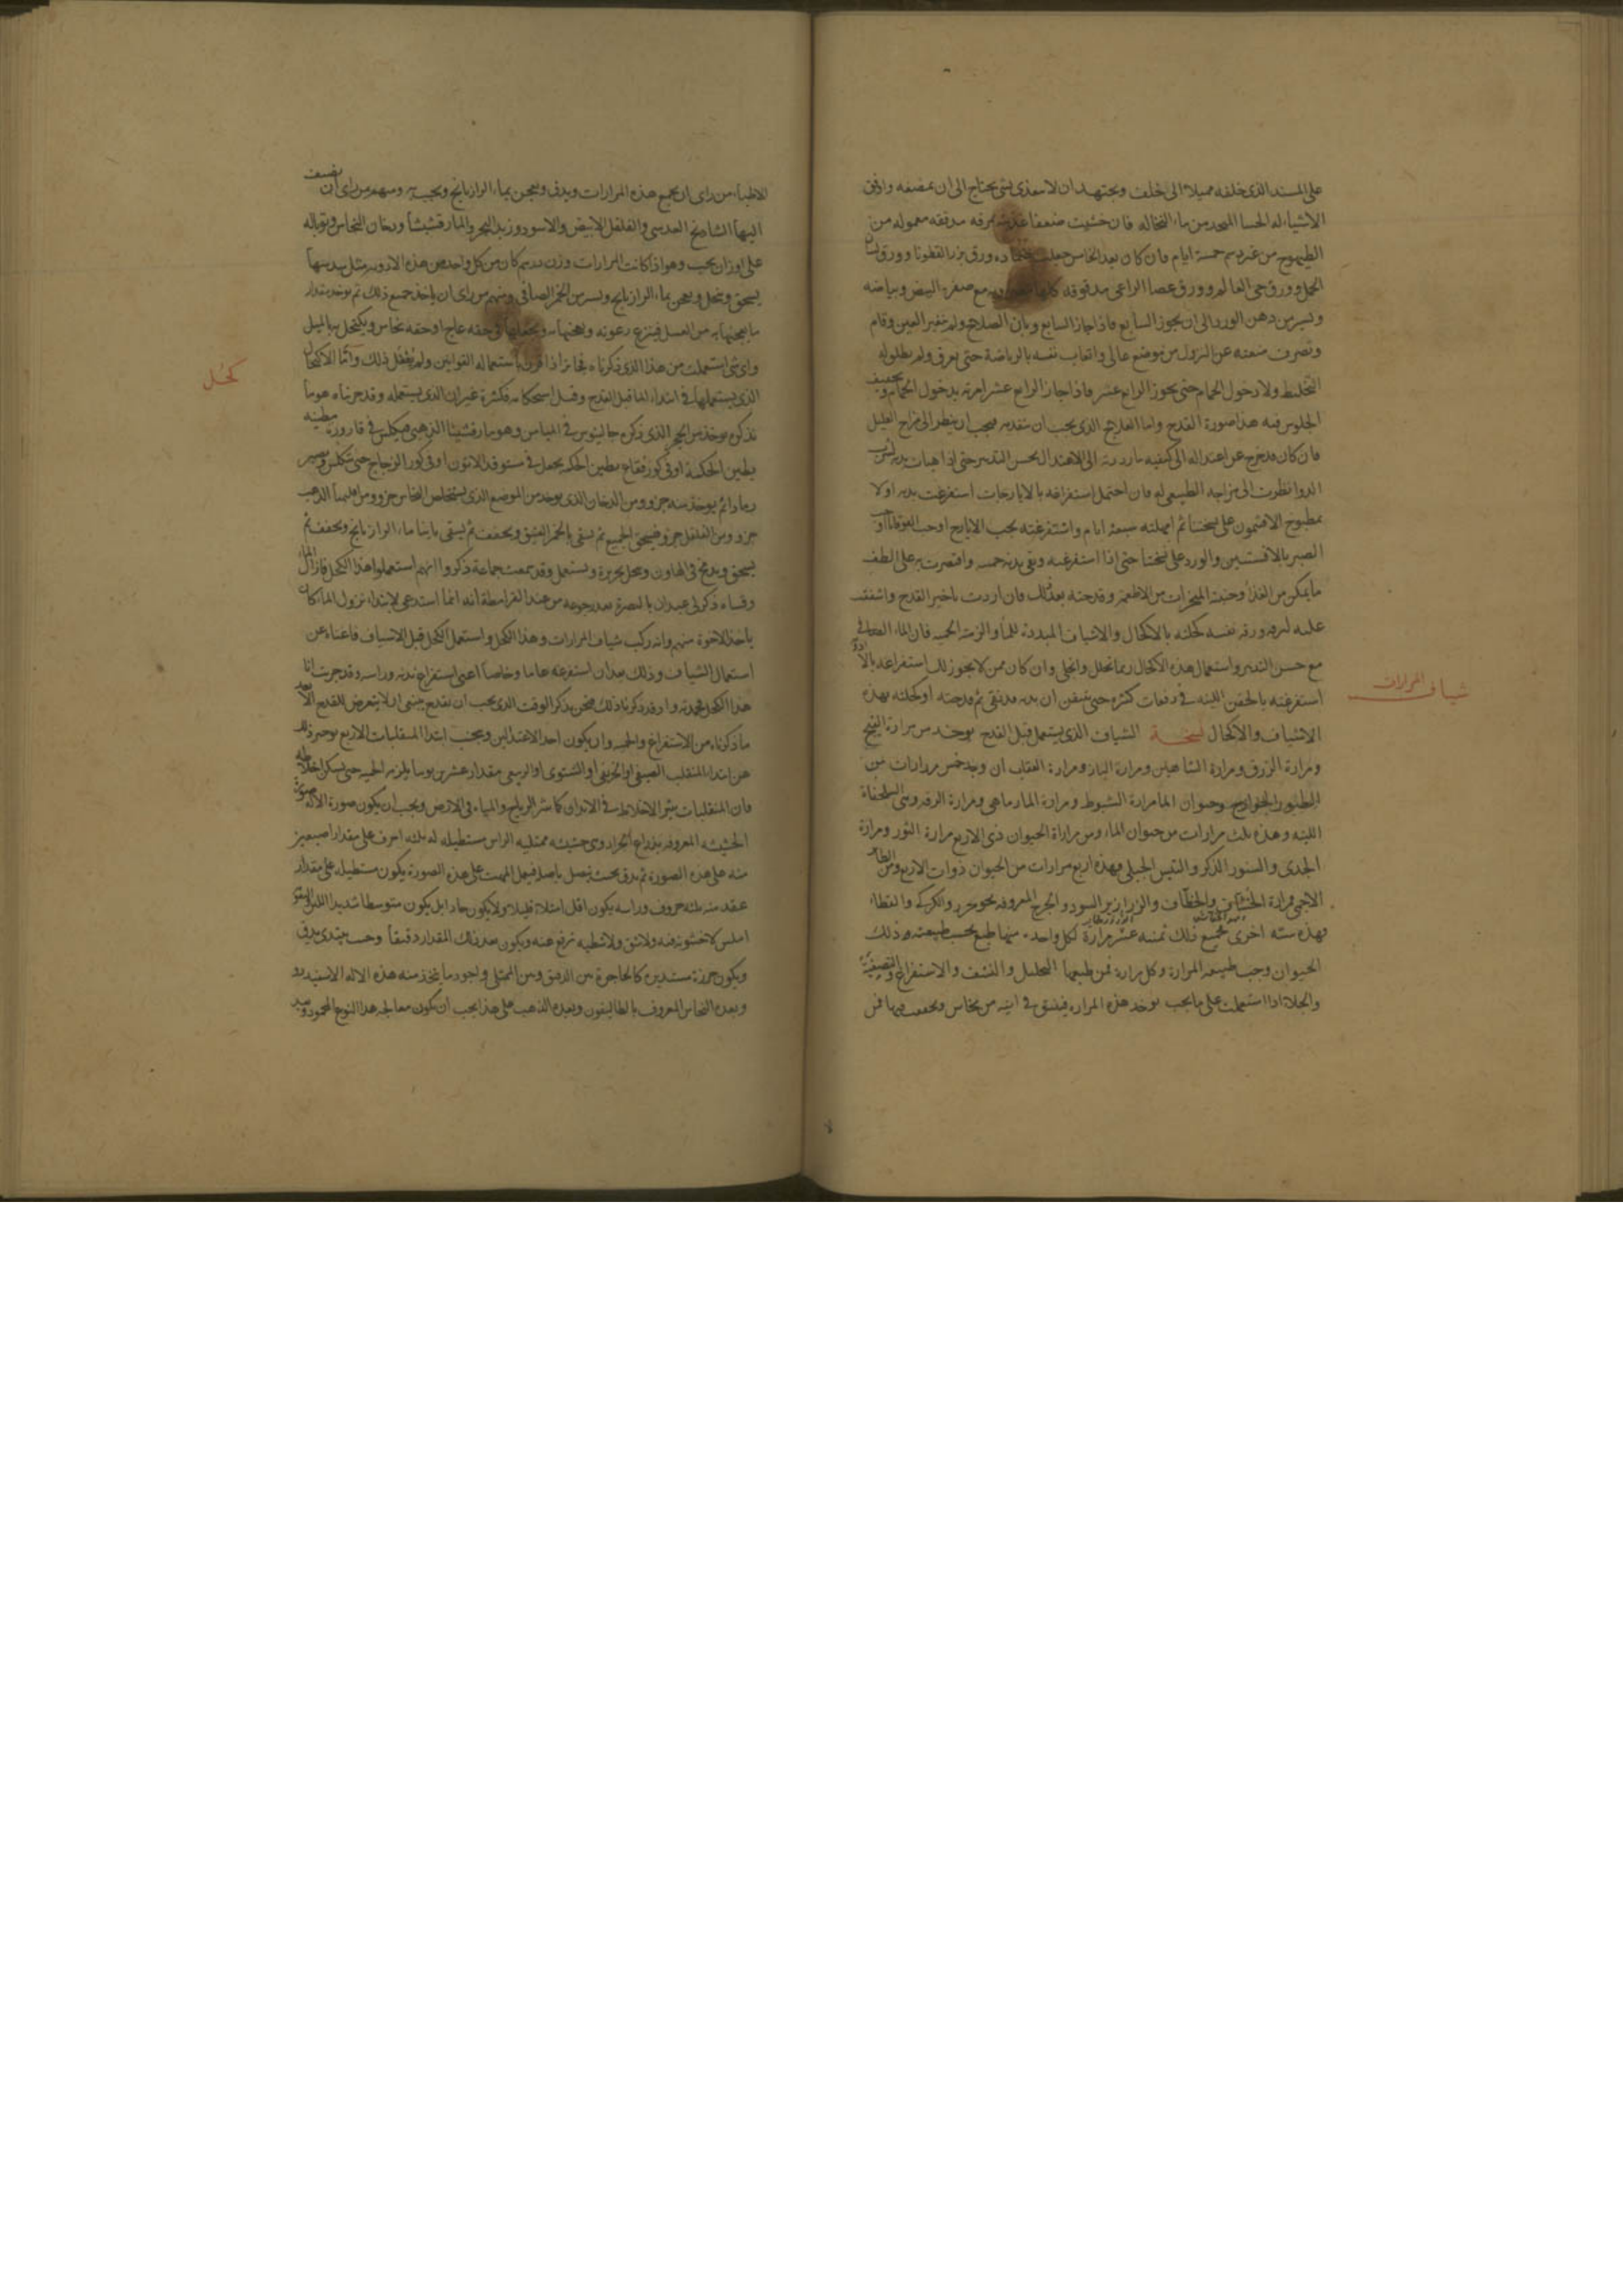 على المسند الذى خلفه مميلا الى خلف ويجتهد ان لا يتغذى بشى يحتاج الى ان يمضغه واوفق
الاشياء له الحسا المتخذ من ماء النخالة فان خشيت ضعفا مرقة مدققة معموله من
الطيهوج من غير دسم خمسة ايام فان كان بعد الخامس جعلت ورق بزرالقطونا وورق لسان
الحمل وورق حى العالم وورق عصا الراعى مدقوقة كلها مع صفرة البيض وبياضه
ويسير من دهن الورد الى ان يجوز السابع فاذا جاز السابع وبان الصلاح ولم يتغير العين وقام
وتصرف منعته عن النزول من موضع عالى واتعاب نفسه بالرياضة حتى يعرق ولم يطلق له
التخليط ولا دخول الحمام حتى يجوز الرابع عشر فاذا جاز الرابع عشر امرته بدخول الحمام وتخفيف
الجلوس فيه هذا صورة القدح واما العلاج الذى يجب ان يتقدمه فيجب ان ينظر الى مزاج العليل
فان كان قد خرج عن اعتداله الى كيفيه ما رددته الى الاعتدال بحسن التدبير حتى اذا بدنه لشرب
الدوا نظرت الى مزاجه الطبيعى له فان احتمل استفراغه بالايارجات استفرغت بدنه اولا
بمطبوخ الافتيمون على نسختنا ثم امهلته سبعة ايام واستفرغته بحب الايارج او حب القوقايا او حب
الصبر بالافسنتين والورد على نسختنا حتى اذا استفرغته ونقى بدنه حميته واقتصرت به على الطف
ما يمكن من الغذا وجنبته المبخرات من الاطعمة وقدحته بعد ذلك فان اردت تاخير القدح واشفقت
عليه نفسه كحلته بالاكحال والاشياف المبددة للماء والزمته الحميه فان الماء الصافى
مع حسن التدبير واستعمال هذه الاكحال ربما تحلل وانجلى وان كان ممن لا يجوز لك استفراغه بالادوية
استفرغته بالحقن اللينه فى دفعات كثيره حتى تتيقن ان بدنه قد نقى ثم قدحته او كحلته بهذه
الاشياف والاكحال نسخة الشياف الذى يستعمل قبل القدح يوخذ من مرارة القبج
ومرارة الزرق ومرارة الشاهين ومرارة الباز ومرارة العقاب ان وجد خمس مرارات من
الطيور الجوارح وحيوان الما مرارة الشبوط ومرارة المارماهى ومرارة الرقه وهى السلحفاة
اللينه وهذه ثلث مرارات من حيوان الماء ومن مرارة الحيوان ذى الاربع مرارة الثور ومرارة
الجدى والسنور الذكر والتيس الجبلى وهذه اربع مرارات من الحيوان ذوات الاربع ومن الطائر
الاجمى مرارة والخطاف والزرازير السود و المعروفه والكركى والقطا
فهذه سته اخرى فجميع ذلك ثمنية عشر مرارة لكل واحد منها طبع بحسب طبيعته وذلك
الحيوان وجب طبيعة المرارة وكل مرارة فمن طبعها التحليل والنشف والاستفراغ والتصفية
والجلاء اذا استعملت على ما يجب يوخذ هذه المرارة فيلقى فى انية من نحاس ويجفف فيها فمن
شياف المرارات
الاطباء من راى ان يجمع هذه المرارات ويدق ويعجن بماء الرازيانج ويحبب ومنهم من راى ان يضيف
اليها الشاذنج العدسى والفلفل الابيض والاسود وزبد البحر والمارقشيثا ودخان النحاس وتوباله
على اوزان يجب وهو اذا كانت المرارات وزن درهم كان من كل واحد من هذه الادويه مثل سدسها
يسحق وينخل ويعجن بماء الرازيانج ويسير من الخمر الصافى ومنهم من راى ان ياخذ جميع ذلك ثم يوخذ مقدار
ما يعجنها به من العسل فينزع رغوته ويعجنها به ويجعلها فى حقه عاج او حقه نحاس ويكتحل به بالميل
واى شى استعملت من هذا الذى ذكرناه فجايز اذا باستعماله القوانين ولم يغفل ذلك واما الاكحال
الذى يستعملها فى ابتداء الما قبل القدح وقبل استحكامه فكثيرة غير ان الذى يستعمله وقد جربناه هو ما
نذكره يوخذ من الحجر الذى ذكره جالينوس فى الميامر وهو مارقشيثا الذهبى فيكلس فى قارورة مطينه
بطين الحكمة او فى كوز فقاع بطين الحكمه يجعل فى مستوقد الاتون او فى كور الزجاج حتى تتكلس ويصير
رمادا ثم يوخذ منه جزو ومن الدخان الذى يوخذ من الموضع الذى يستخلص النحاس جزو ومن اقليميا الذهب
جزو ومن الفلفل جزو فيسحق الجميع ثم يسقى بالخمر العتيق ويجفف ثم يسقى ماء الرازيانج ويجفف ثم
يسحق ويدمج فى الهاون وينخل بحريرة ويستعمل وقد سمعت جماعة ذكروا انهم استعملوا هذا الكحل فازال الماء
وقساه ذكر لى عبدان بالبصرة بعد رجوعه من عند القرامطة انه انما استدعى لابتداء نزول الماء كان
باحد الاخوة منهم وانه ركب شياف المرارات وهذا الكحل واستعمل الكحل قبل الاشياف فاغناه عن
استعمال الشياف وذلك بعد ان استفرغه عاما وخاصا اعنى استفراغ بدنه وراسه وقد جربت انا
هذا الكحل فحمدته واذ قد ذكرنا ذلك فنحن نذكر الوقت الذى يجب ان تقدح فينبغى ان لا يتعرض للقدح الا بعد
ما ذكرناه من الاستفراغ والحميه وان يكون احد الاعتدالين ويجنب ابتدا المنقلبات الاربع يوخر ذلك
عن ابتداء المنقلب الصيفى او الخريفى او الشتوى او الربيعى مقدار عشرين يوما يلزمه الحميه حتى يسكن اخلاطه
فان المنقلبات يثير الاخلاط فى الابدان كما يثير الرياح والمياه فى الارض ويجب ان يكون صورة الاله صورة
الحشيشه المعروفه بذراع الجراد وهى حشيشه ممتليه الراس مستطيله له ثلثه احرف على مقدار اصبعين
منه على هذه الصورة ثم يدق بحيث يتصل باصله فيعمل المهت على هذه الصورة يكون مستطيلا على مقدار
عقد منه ثلثه حروف وراسه يكون اقل امتلاء قليلا ولا يكون حادا بل يكون متوسطا شديد اللين
املس لا خشونة فيه ولا شق ولا شظيه ترتفع عنه ويكون بعد ذلك المقدار دقيقا وحيث يبتدى يدق
ويكون خرزة مستديره كالحاجزة بين الدقيق وبين الممتلى واجود ما يتخذ منه هذه الاله الاسفيدرو
وبعده النحاس المعروف بالطاليقون وبعده الذهب على هذا يجب ان يكون معالجه هذا النوع المحمود
كحل